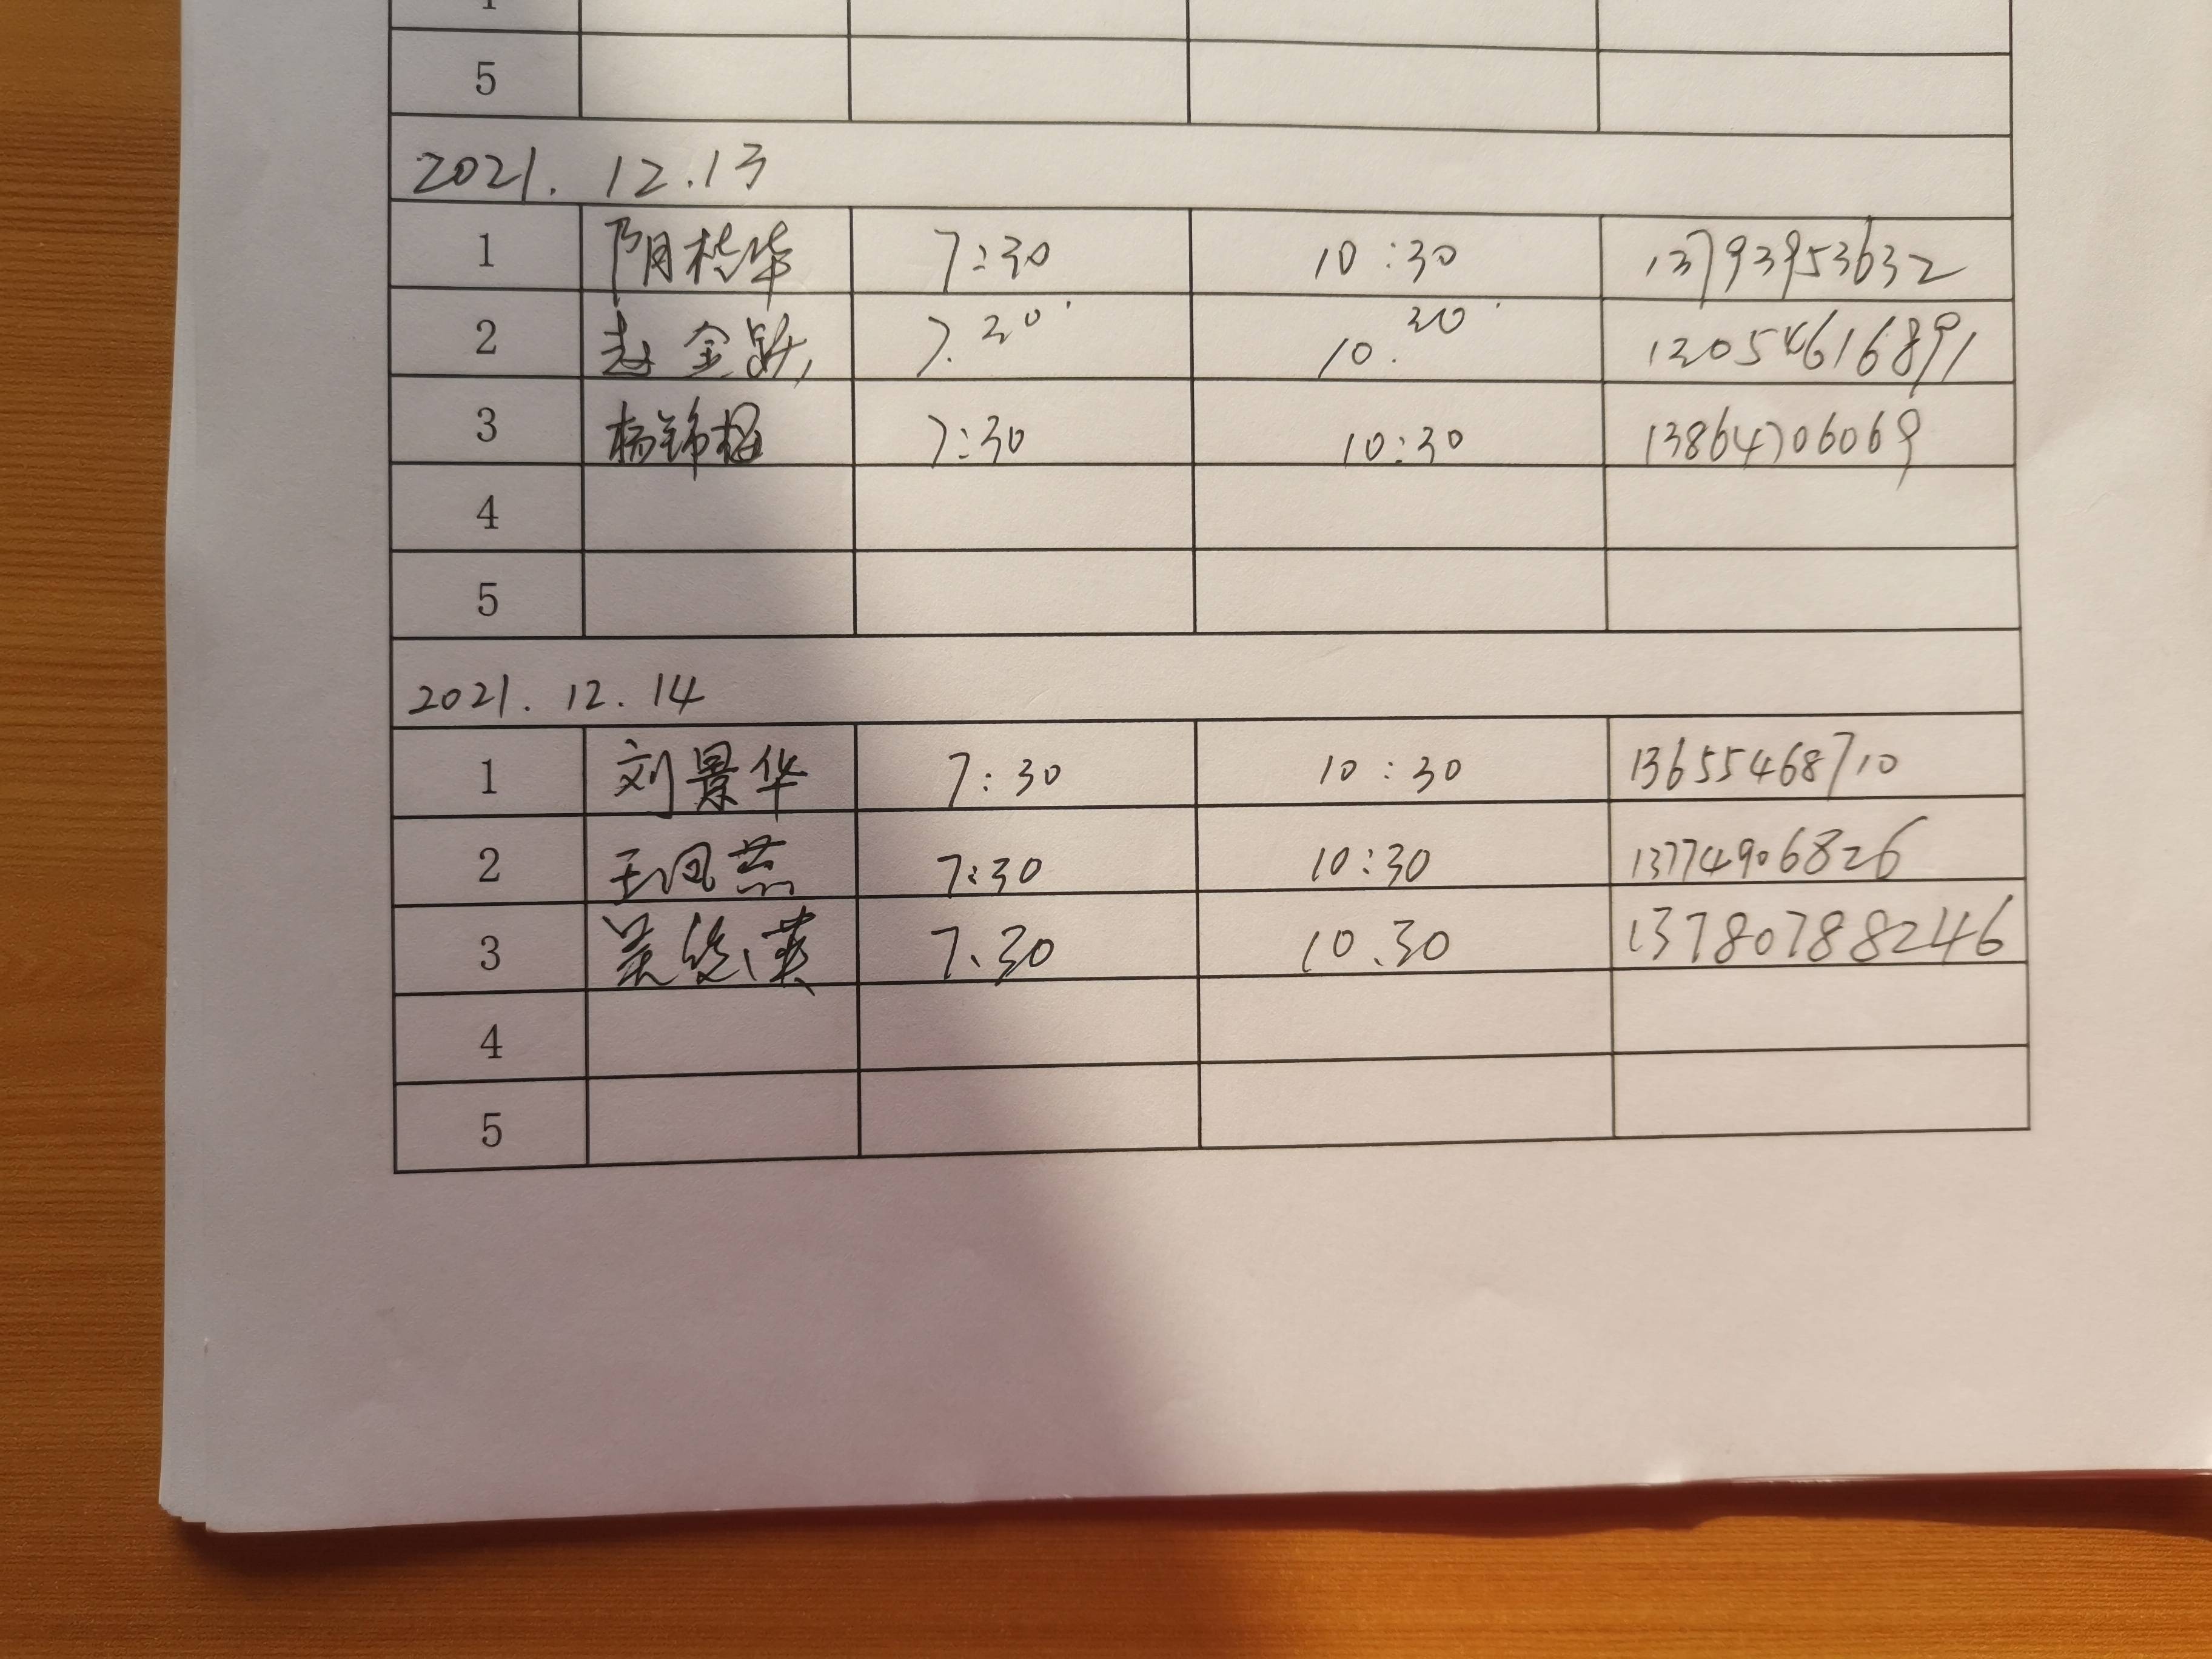 5
2021. 12.13
1 阴桂华 7:30 10:30 13793953632
2 赵金跃 7.30 10.30 12054616891
3 杨锦梅 7:30 10:30 13864706069
4
5
2021. 12. 14
1 刘景华 7:30 10:30 13655468710
2 王凤燕 7:30 10:30 13774906826
3 7.30 10.30 13780788246
4
5